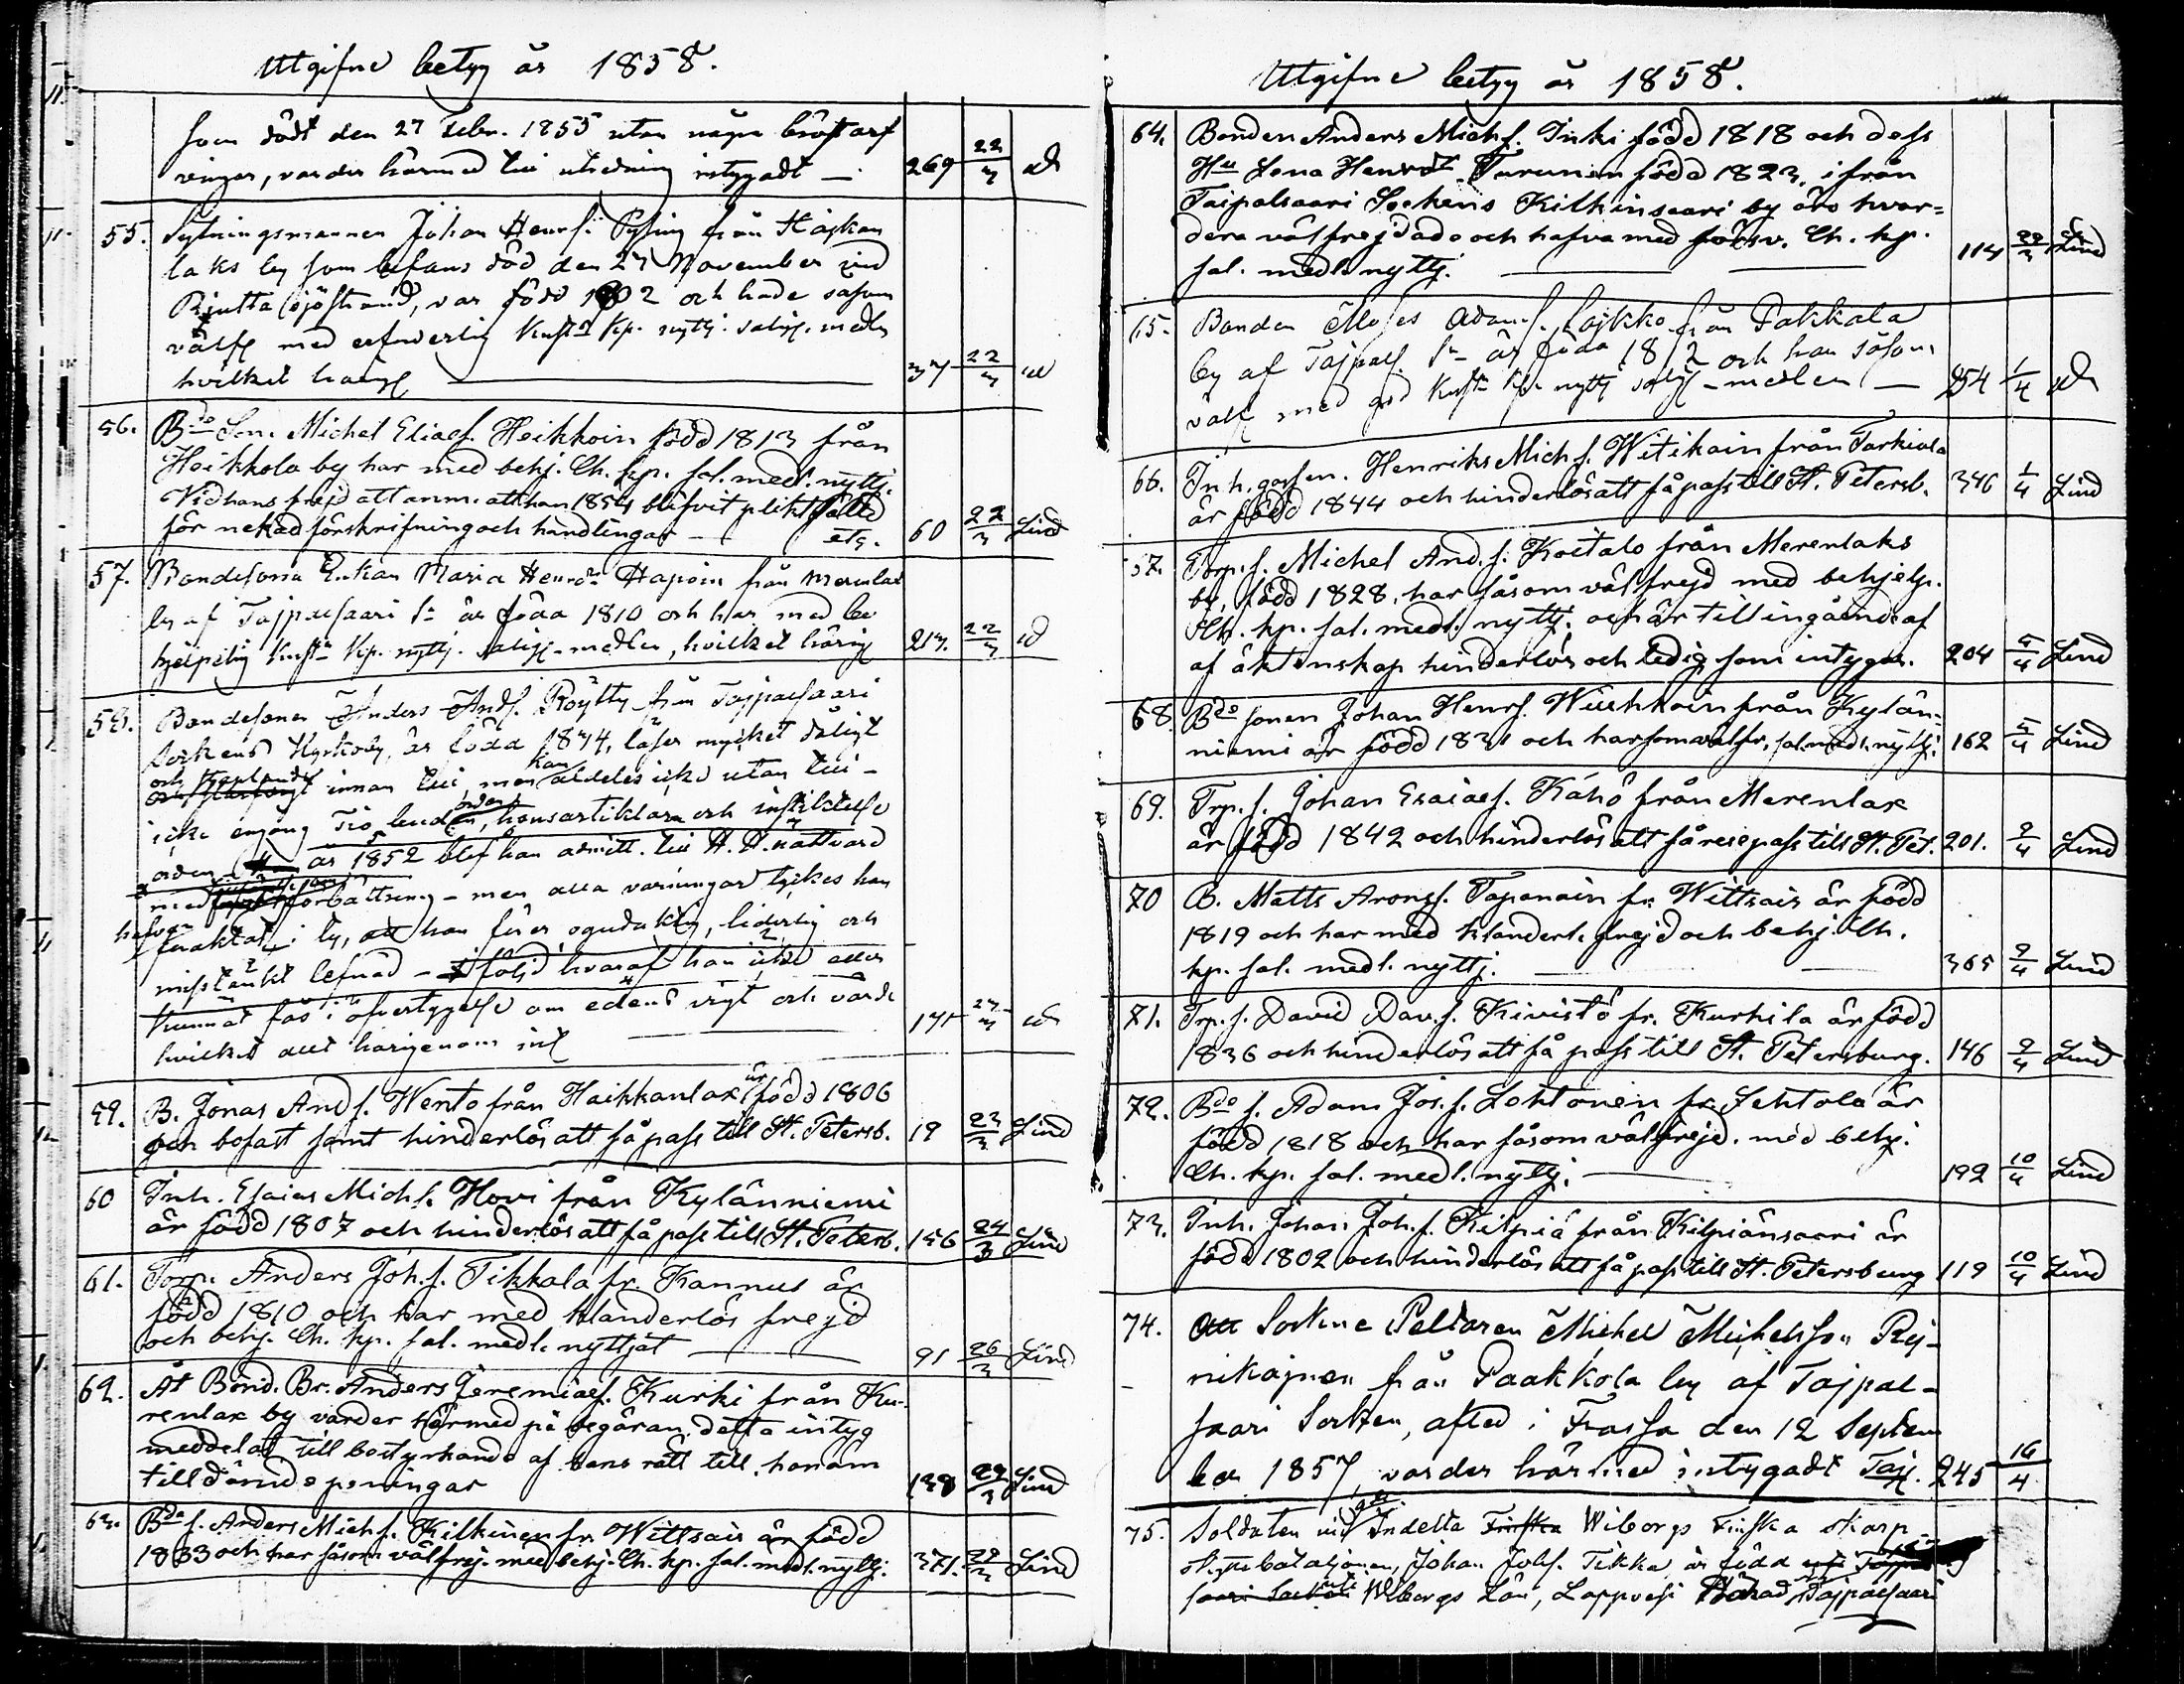 Utgifne betyg år 1858.
som dödt den 27 Febr. 1855 utan några bröstarf
vingar, varder härmed till utredning intygadt — 269 22/3
55. Sytningsmannen Johan Henrs. från
laks by som befans död den 27 November vid
sjöstrand, var född 1802 och hade såsom
välfr med erforderlig Kp. nyttj. salig. medln
hvilket 37 22/3
56. Bde Son. Michel Eliaes. Heikkoin född 1813 från
Heikkola by har med behj. Ch. kp. sal. medl. nyttj.
Vid hans frejd att anm. att han 1854 blifvit pliktfälld
för nekad förskrifning och handlingar — etc. 60 22/3 Lind
57. Bondesona Enkan Maria Henrdr Hapoin från Merenlax
by af Tajpalsaari Sn är född 1810 och har med be
hjelpelig Kp. nyttj. salig. medlen, hvilket härig 213. 22/3
58. Bondesonen Anders Ands. Röytty från Tajpalsaari
Sockens Kyrkoby, är född 1834, läser mycket dåligt
och innan till, men kan aldeles icke utan till —
icke engång Tio buden, hausartiklarn och instiktelse
orden år 1852 blef han admitt. till H. H. nattvard
med förbättring — men alla varningar tyckes han
hafva föraktat i by, att han förer oguduktig, liderlig och
misstänkt lefnad — i följd hvaraf han icke eller
kunnat fås i öfvertygelse om edens vigt och värde
hvilket allt härigenom int 171 27/3
59. B. Jonas And. s. Wento från Haikkanlax är född 1806
och bofast samt hinderlös att få pass till St. Petersb. 19 23/3 Lind
60 Inh. Esaias Mich. s. Hovi från Kylänniemi
är född 1807 och hinderlös att få pass till St. Petersb. 156 24/3 Lind
61. Torp. Anders Joh. s. Tikkala fr. Kannus är
född 1810 och har med klanderlös frejd
och behj. Ch. kp. sal. medl. nyttjat 91 26/3 Lind
62. At Bond. Br. Anders Jeremiaes. Kurki från Ku-
renlax by varder härmed på begäran detta intyg
meddelat till bestyrkande af hans rätt till honom
tilldömde peningar 138 29/3 Lind
63. Bde s. Anders Mich. s. Kilkinen fr. Wittsais är född
1833 och har såsom välfrej. med behj. Ch. kp. sal. medl. nyttj. 371. 29/3 Lind
Utgifne betyg år 1858.
64. Bonden Anders Mich s. Inki född 1818 och dess
Hu Lena Henrdr. Turunen född 1823, ifrån
Taipalsaari Sockens Kilkinsaari by äro hvar-
dera välfrejdade och hafva med försv. Ch. kp.
sal. medl. nyttj. 114 29/3 Lind
65. Bonden Moses Adams. Lajkko från Pakkala
by af Tajpals. Sn är född 1812 och har såsom
välfr med god Kp. nyttj salig. medlen — 254 1/4
66. Inh. gossen. Henriks Mich s. Witikain från Tarkiala
är född 1844 och hinderlös att få pass till St. Petersb. 346 1/4 Lind
67. Torp. s. Michel And. s. Koitalo från Merenlaks
by, född 1828, har såsom välfrejd med behjelp.
Ch. kp. sal. medl. nyttj. och är till ingående af
af äktenskap hinderlös och ledig som intygas. 204 5/4 Lind
68. Bde sonen Johan Henrs. Wiuhkoin från Kylän-
niemi är född 1831 och har som välfr. sal. medl. nyttj. 162 5/4 Lind
69. Trp. s. Johan Esaiaes. Kähö från Merenlax
är född 1842 och hinderlös att få resepass till St. Pet. 201. 9/4 Lind
70 B. Matts Arons s. Tapanain fr. Wittsais är född
1819 och har med klanderl. frejd och behj. Ch.
kp. sal. medl. nyttj. 365 9/4 Lind
71. Trp. s. David Dav. s. Kivistö fr. Kurhila är född
1836 och hinderlös att få pass till St. Petersburg. 146 9/4 Lind
72. Bde s. Adam Jos. s. Lohtonen fr. Lehtola är
född 1818 och har såsom välfrejd. med behj.
Ch. kp. sal. medl. nyttj. 192 10/4 Lind
73. Inh. Johan Joh. s. Kilpiä från Kilpiänsaari är
född 1802 och hinderlös att få pass till St. Petersburg 119 10/4 Lind
74. Att Sockne Peldaren Michel Michelsson Rej-
nikajnen från Paakkola by af Tajpal-
saari Socken, afled i Frassa den 12 Septem
ber 1857, varder härmed intygadt Taj. 245 16/4
75. Soldaten vid Indelta Finska Wiborgs Finska skarp-
skyttebataljonen, Johan Johs. Tikka, är född
saari Socken Wiborgs Län, Lappvesi Härad, Tajpalsaari